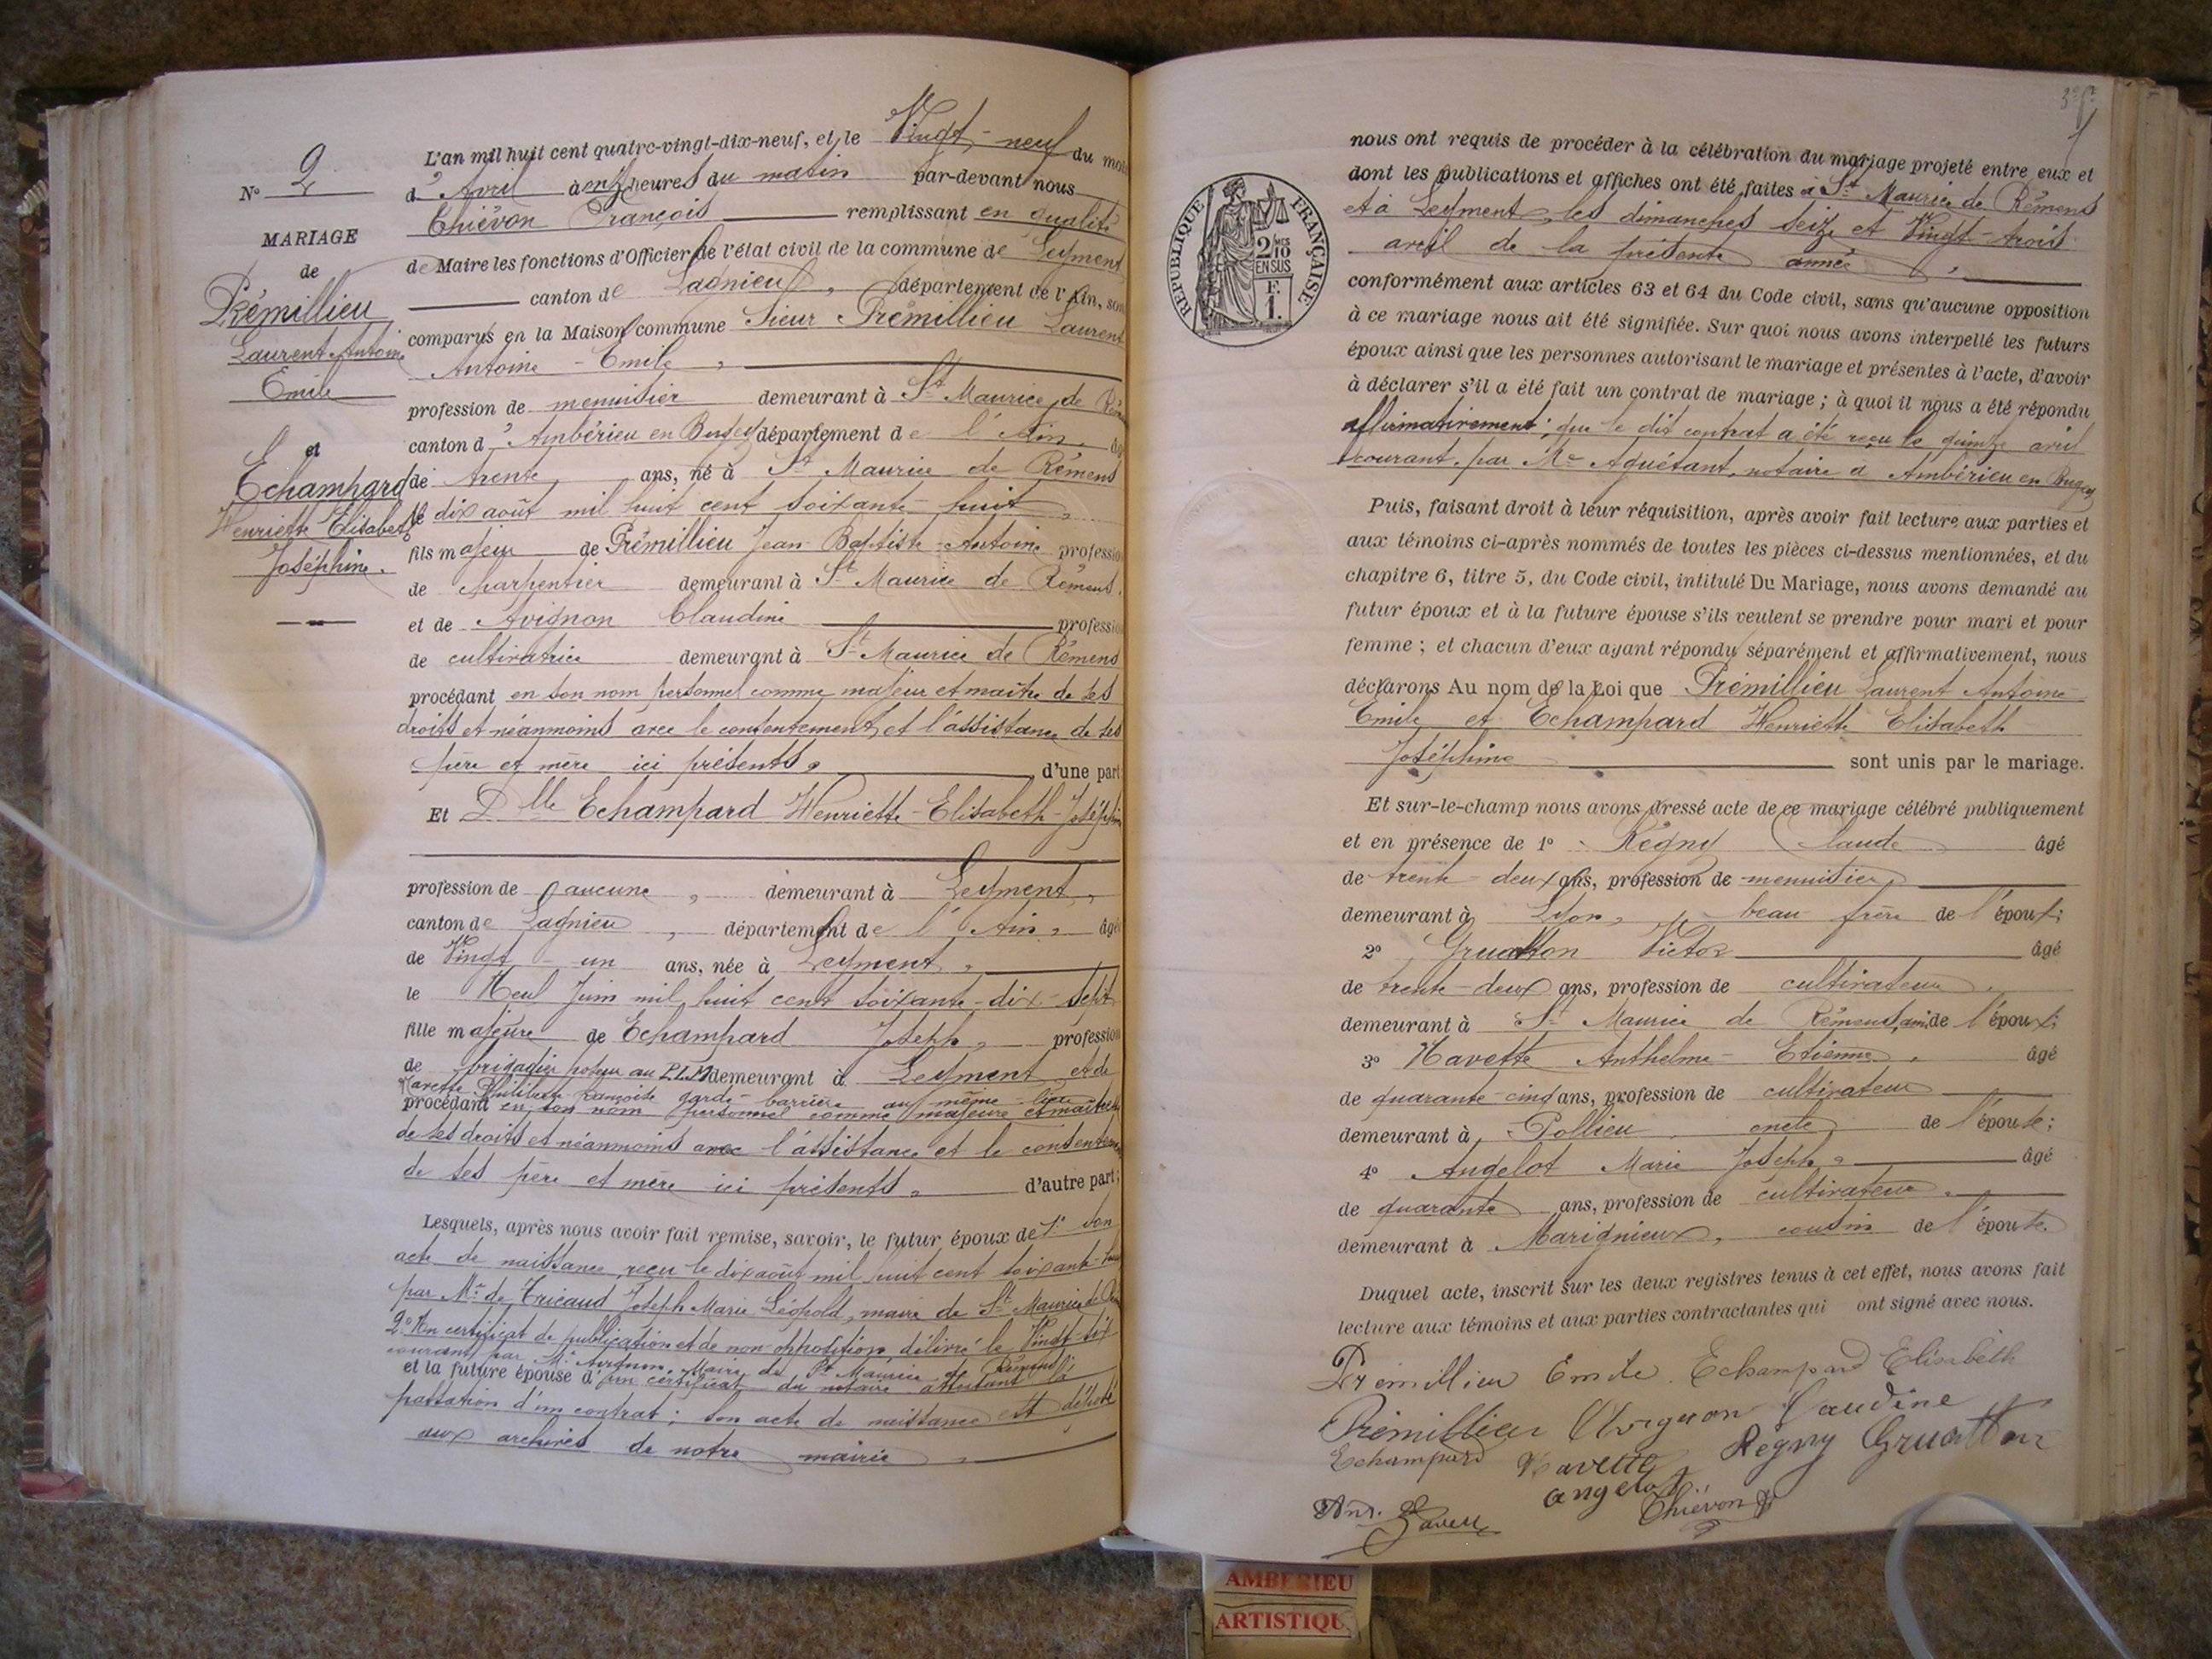 N° 2
MARIAGE
de
Prémillieu
Laurent Antoine
Emile
et
Echampard
Henriette Elisabeth
Joséphine.
L'an mil huit cent quatre-vingt-dix-neuf, et le Vingt-neuf du mois
d'Avril à onze heures du matin par-devant nous
Thiévon François remplissant en qualité
de Maire les fonctions d'Officier de l'état civil de la commune de Leyment
canton de Lagnieu, département de l'Ain, sont
comparus en la Maison commune Sieur Prémillieu Laurent
Antoine-Emile,
profession de menuisier demeurant à St Maurice de Rémens
canton d'Ambérieu en Bugey département de l'Ain âgé
de trente ans, né à St Maurice de Rémens
le dix août mil huit cent soixante-huit,
fils majeur de Prémillieu Jean-Baptiste-Antoine profession
de charpentier demeurant à St Maurice de Rémens,
et de Avignon Claudine profession
de cultivatrice demeurant à St Maurice de Rémens
procédant en son nom personnel comme majeur et maître de ses
droits et néanmoins avec le consentement et l'assistance de ses
père et mère ici présents, d'une part
Et Dlle Echampard Henriette-Elisabeth-Joséphine
profession de aucune, demeurant à Leyment,
canton de Lagnieu, département de l'Ain, âgée
de Vingt-un ans, née à Leyment,
le Neuf Juin mil huit cent soixante-dix-sept
fille majeure de Echampard Joseph, profession
de brigadier poseur au P.L.M demeurant à Leyment et de
Navette Philiberte Françoise garde-barrière au même lieu
procédant en son nom personnel comme majeure et maîtresse
de ses droits et néanmoins avec l'assistance et le consentement
de ses père et mère ici présents, d'autre part;
Lesquels, après nous avoir fait remise, savoir, le futur époux de 1° son
acte de naissance reçu le dix août mil huit cent soixante-huit
par Mr de Tricaud Joseph Marie Léopold, maire de St Maurice de Rémens
2° Un certificat de publication et de non opposition délivré le Vingt-six
courant par Mr Maire de St Maurice de Rémens;
et la future épouse d'un certificat du notaire attestant la
passation d'un contrat; son acte de naissance est déposé
aux archives de notre mairie
RÉPUBLIQUE FRANÇAISE
2/10
EN SUS
F.
1.
nous ont requis de procéder à la célébration du mariage projeté entre eux et
dont les publications et affiches ont été faites à St Maurice de Rémens
et à Leyment, les dimanches seize et Vingt-trois
avril de la présente année,
conformément aux articles 63 et 64 du Code civil, sans qu'aucune opposition
à ce mariage nous ait été signifiée. Sur quoi nous avons interpellé les futurs
époux ainsi que les personnes autorisant le mariage et présentes à l'acte, d'avoir
à déclarer s'il a été fait un contrat de mariage; à quoi il nous a été répondu
affirmativement; que le dit contrat a été reçu le quinze avril
courant, par Me Aguétant, notaire à Ambérieu en Bugey
Puis, faisant droit à leur réquisition, après avoir fait lecture aux parties et
aux témoins ci-après nommés de toutes les pièces ci-dessus mentionnées, et du
chapitre 6, titre 5, du Code civil, intitulé Du Mariage, nous avons demandé au
futur époux et à la future épouse s'ils veulent se prendre pour mari et pour
femme; et chacun d'eux ayant répondu séparément et affirmativement, nous
déclarons Au nom de la Loi que Prémillieu Laurent Antoine
Emile et Echampard Henriette Elisabeth
Joséphine sont unis par le mariage.
Et sur-le-champ nous avons dressé acte de ce mariage célébré publiquement
et en présence de 1° Régny Claude âgé
de trente-deux ans, profession de menuisier,
demeurant à Lyon, beau frère de l'époux;
2° Gruatton Victor âgé
de trente-deux ans, profession de cultivateur,
demeurant à St Maurice de Rémens, ami de l'époux;
3° Navette Anthelme-Etienne, âgé
de quarante-cinq ans, profession de cultivateur
demeurant à Pollieu, oncle de l'épouse;
4° Angelot Marie Joseph, âgé
de quarante ans, profession de cultivateur,
demeurant à Marignieux, cousin de l'épouse.
Duquel acte, inscrit sur les deux registres tenus à cet effet, nous avons fait
lecture aux témoins et aux parties contractantes qui ont signé avec nous.
Prémillieu Emile. Echampard Elisabeth
Prémillieu Avignon Claudine
Echampard Navette Régny Gruatton
Angelot
Thiévon F
AMBERIEU
ARTISTIQU